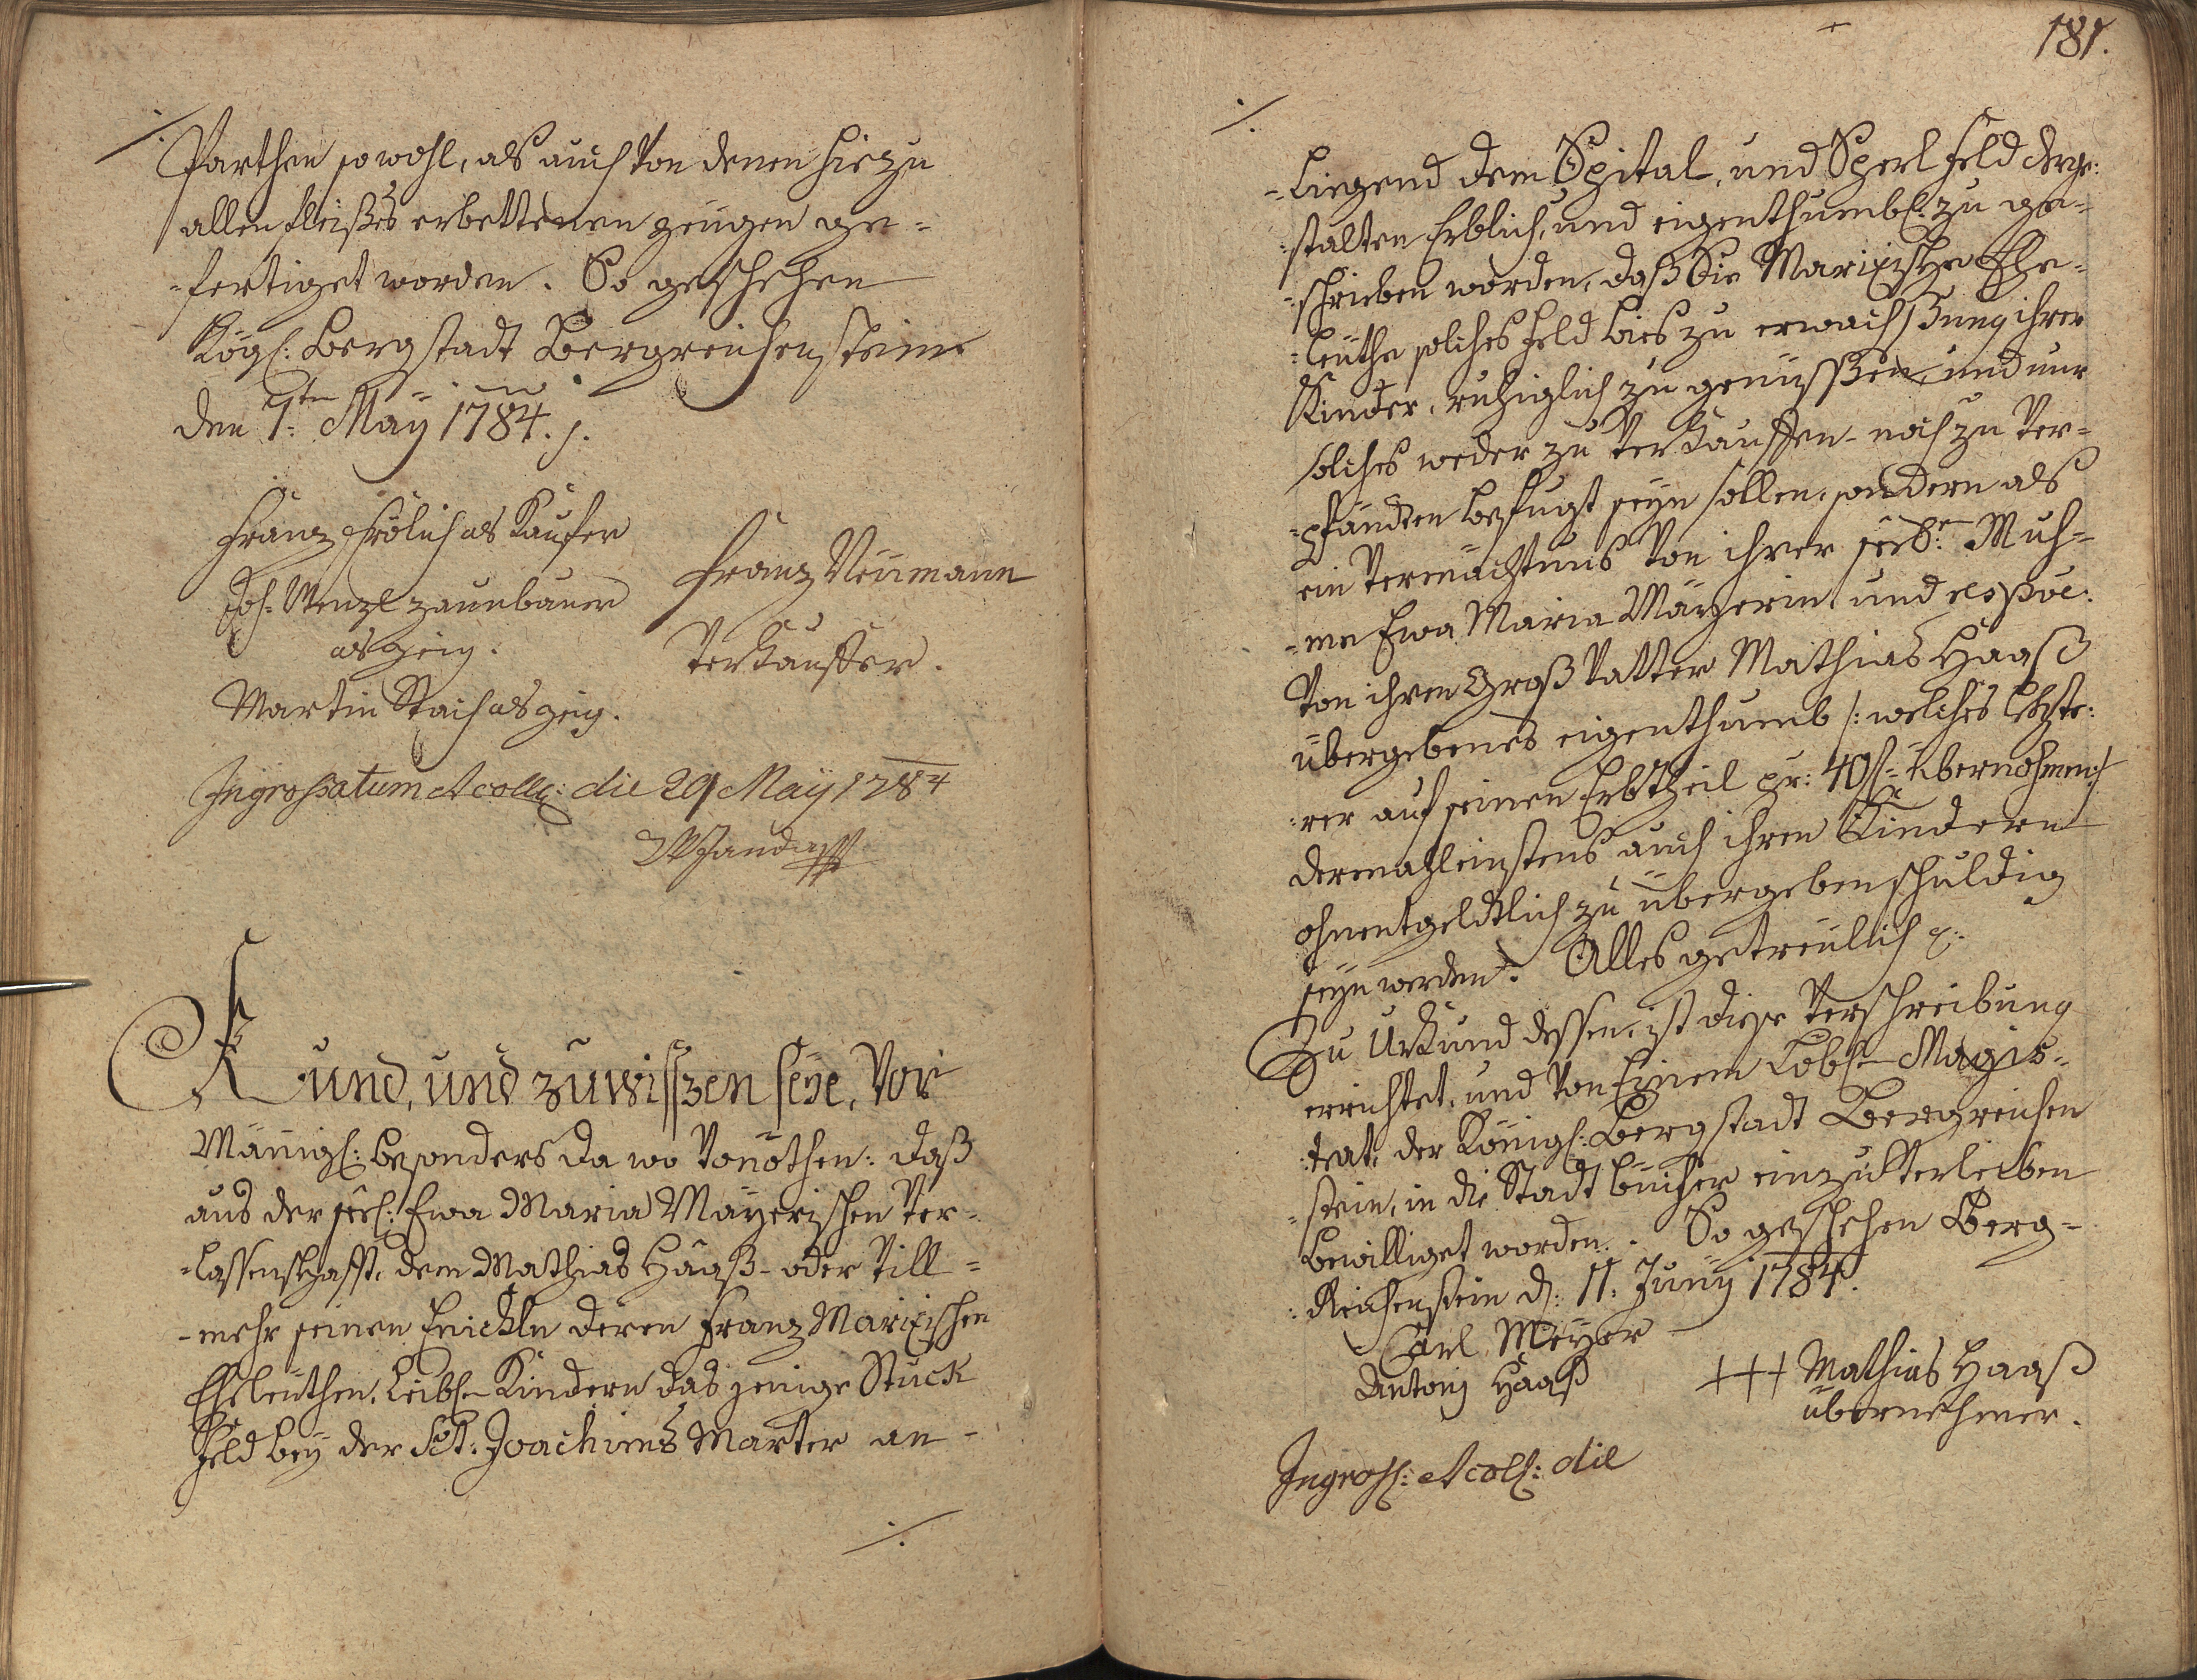 ./.
Parthen sowohl, als auch von denen hiezu
allen fleißes erbettenen zeugen ge-
-fertiget worden. So geschehen
Kögl: Bergstadt Bergreichenstein
den 1ten May 1784. /.
Franz Frölich als Kaufer
Joh: Wenzl Zaunbauer
als zeig.
Martin Stach als zeig.
Franz Neumann
Verkauffer.
Ingrossatum et coll: die 29 May 1784
Kund, und zuwissen seye, Vor
Männigl: besonders da wo vonöthen: daß
aus der seel: Ewa Maria Mayerischen Ver-
-lassenschafft, dem Mathias Haaß- oder Vill-
-mehr seinen Enickln deren Franz Marixischen
Eheleuthen, Leibl- Kindern das jenige Stuck
Feld bey der Sct: Joachims Marter an-
./.
181.
./.
-liegend dem Spital, und Sperl Feld derge:
:stalten Erblich, und eigenthumbl: zu ge-
-schrieben worden, daß die Marixische Ehe-
-leuthe solches Feld bies zu erwachßung ihrer
Kinder, ruhiglich zu genüssen, und nur
solches weder zu Verkauffen- noch zu Ver-
-pfändten befugt seyn sollen, sondern als
ein Vermächtnus von ihrer seel: Muh-
-me Ewa Maria Mayerin und respve:
Von ihren Groß Vatter Mathias Haaß
übergebenes eigenthumb /: welches letzte:
:rer auf seinen Erbtheil pr: 40 f- übernohmen :/
dermahleinstens auch ihren Kindern
ohnentgeldtlich zu übergeben schuldig
seyn werden. Alles getreulich
Zu Urkund dessen, ist diese Verschreibung
errichtet, und von Einem Löbl- Magis-
:trat, der Königl: Bergstadt Bergreichen
-stein, in die Stadt bücher einzuverleiben
bewilliget worden. So geschehen Berg-
:Reichenstein d: 11. Juny 1784.
Carl Meyer
Antoni Haaß
+++ Mathias Haaß
übernehmer.
Ingross: et coll: die